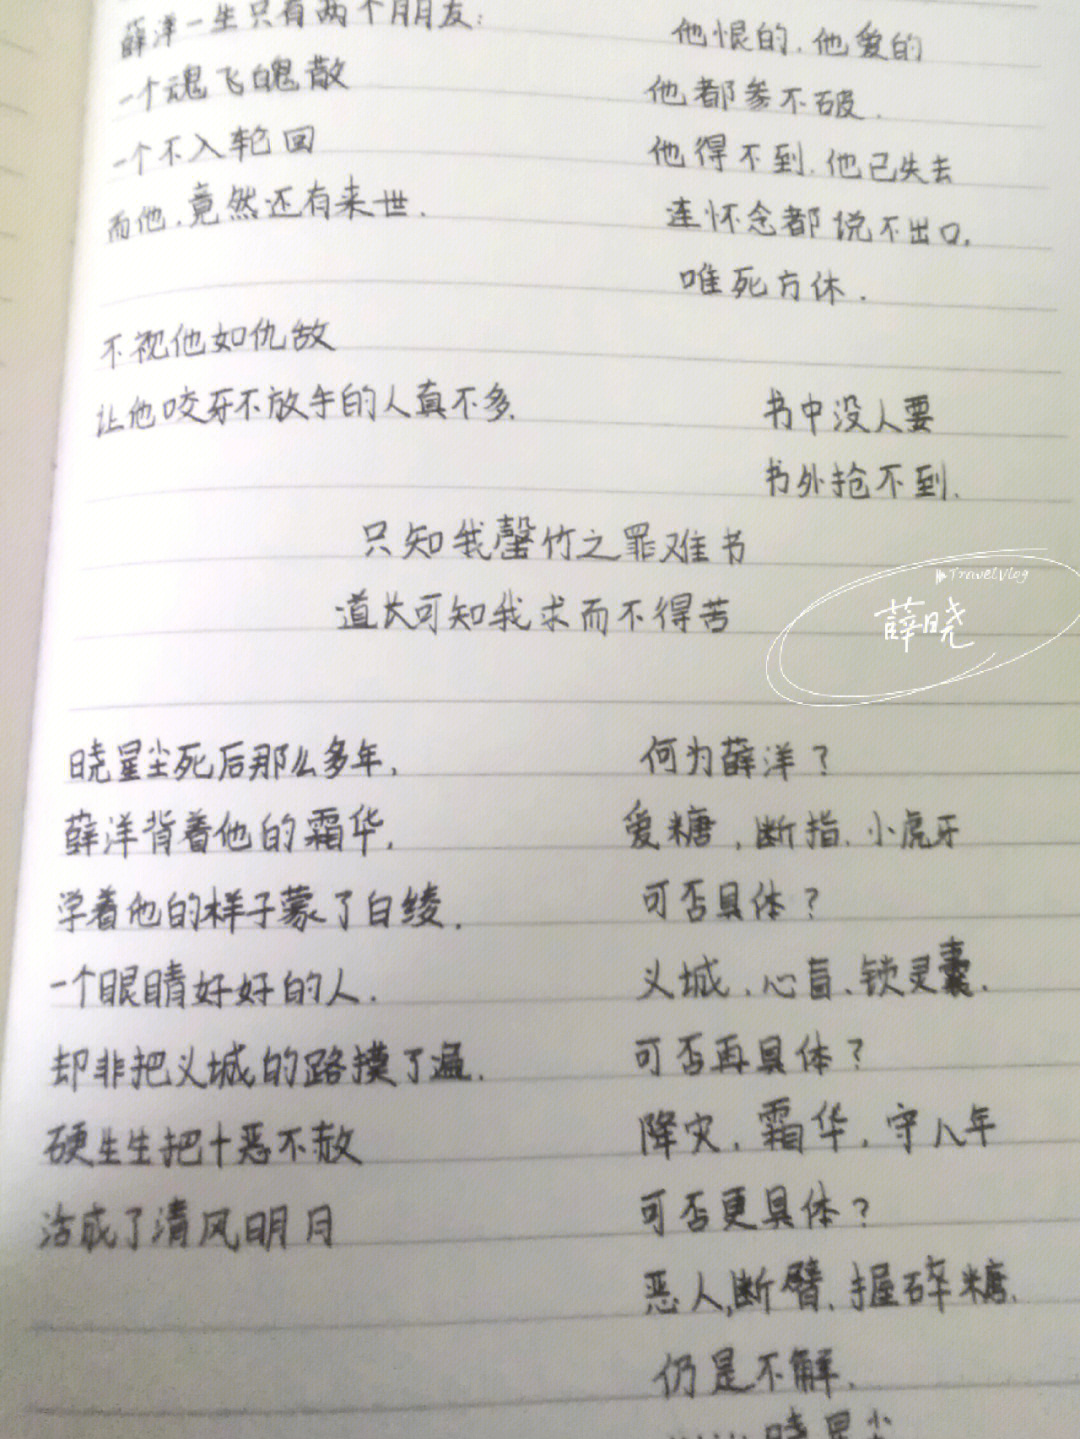 薛洋一生只有两个月朋友:
一个魂飞魄散
一个不入轮回
而他.竟然还有来世.
不视他如仇敌
让他咬牙不放手的人真不多.
他恨的.他爱的
他都参不破.
他得不到.他已失去
连怀念都说不出口.
唯死方休.
书中没人要
书外抢不到.
只知我罄竹之罪难书
道长可知我求而不得苦
TravelVlog
薛晓
晓星尘死后那么多年,
薛洋背着他的霜华,
学着他的样子蒙了白绫.
一个眼睛好好的人.
却非把义城的路摸了遍.
硬生生把十恶不赦
活成了清风明月
何为薛洋?
爱糖,断指.小虎牙
可否具体?
义城.心盲.锁灵囊.
可否再具体?
降灾.霜华.守八年
可否更具体?
恶人,断臂.握碎糖.
仍是不解.
晓星尘